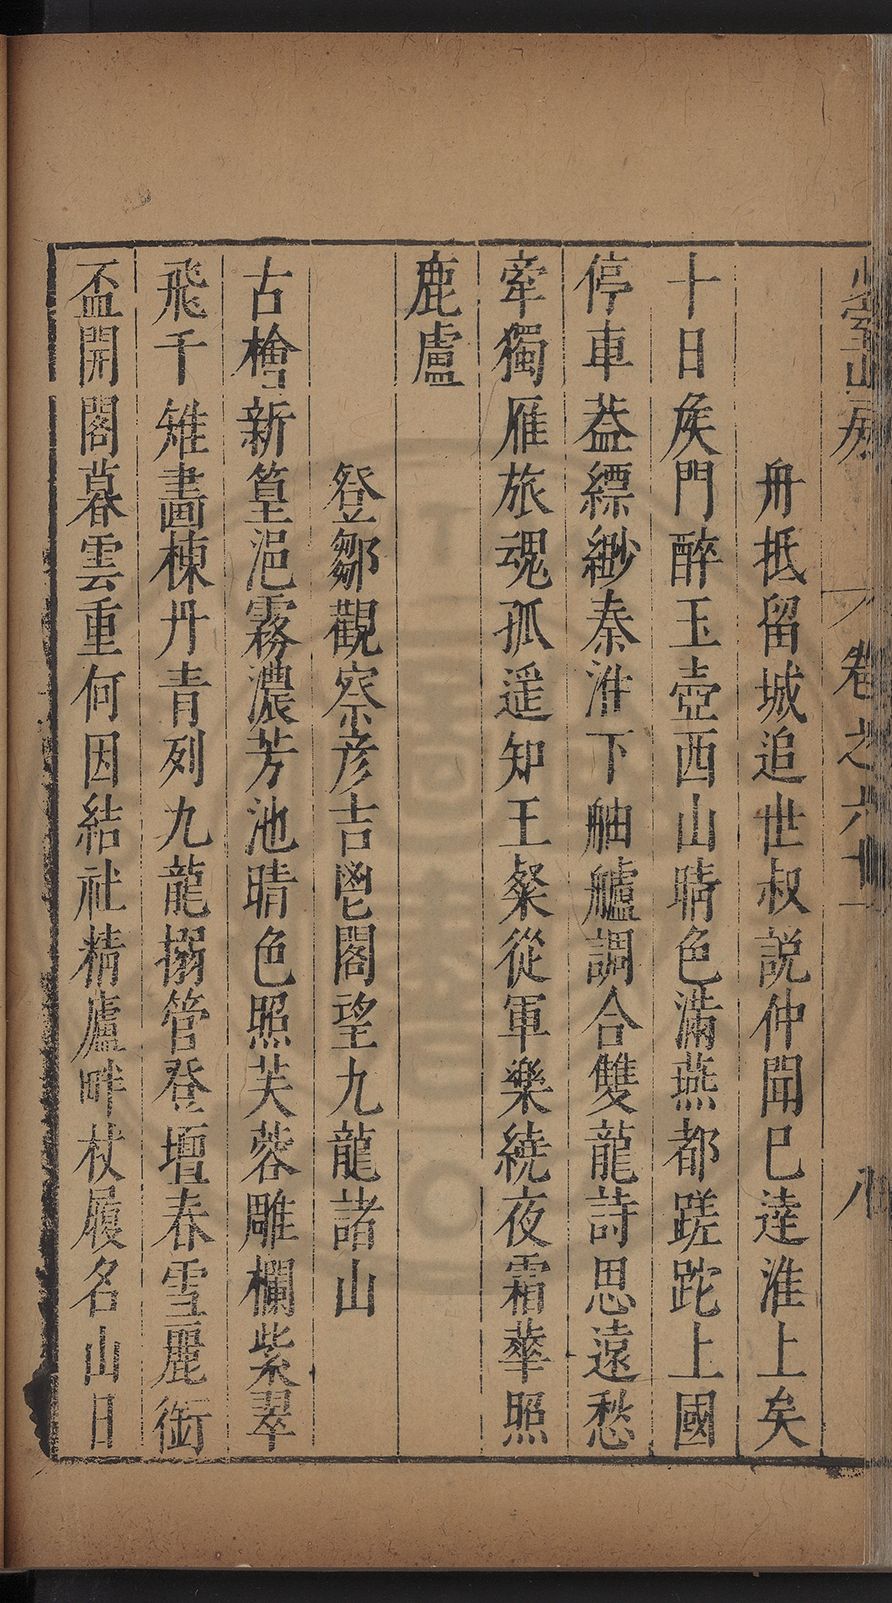 卷之六
八
舟抵留城追世叔説仲聞巳達淮上矣
十日矦門醉玉壺西山晴色滿燕都蹉跎上國
停車葢縹緲秦淮下舳艫調合雙龍詩思遠愁
牽獨雁旅魂孤遥知王粲從軍樂繞夜霜華照
鹿盧
登鄒觀察彦吉鬯閣望九龍諸山
古檜新篁浥霧濃芳池晴色照芙蓉雕欄紫翠
飛千雉畫棟丹青列九龍搦管登壇春雪麗銜
盃開閣暮雲重何因結社精廬畔杖履名山日